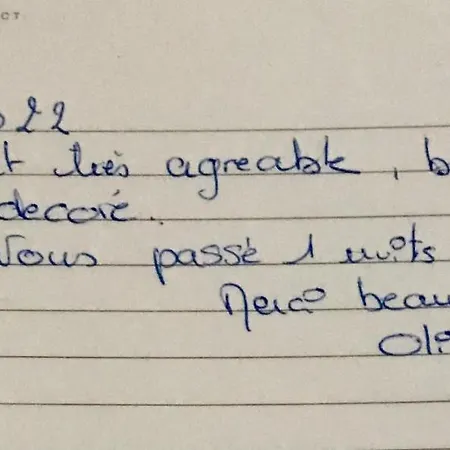 CT
22
t très agreable, b
decoré.
Vous passé 1 nuits
Merci beau
Oli